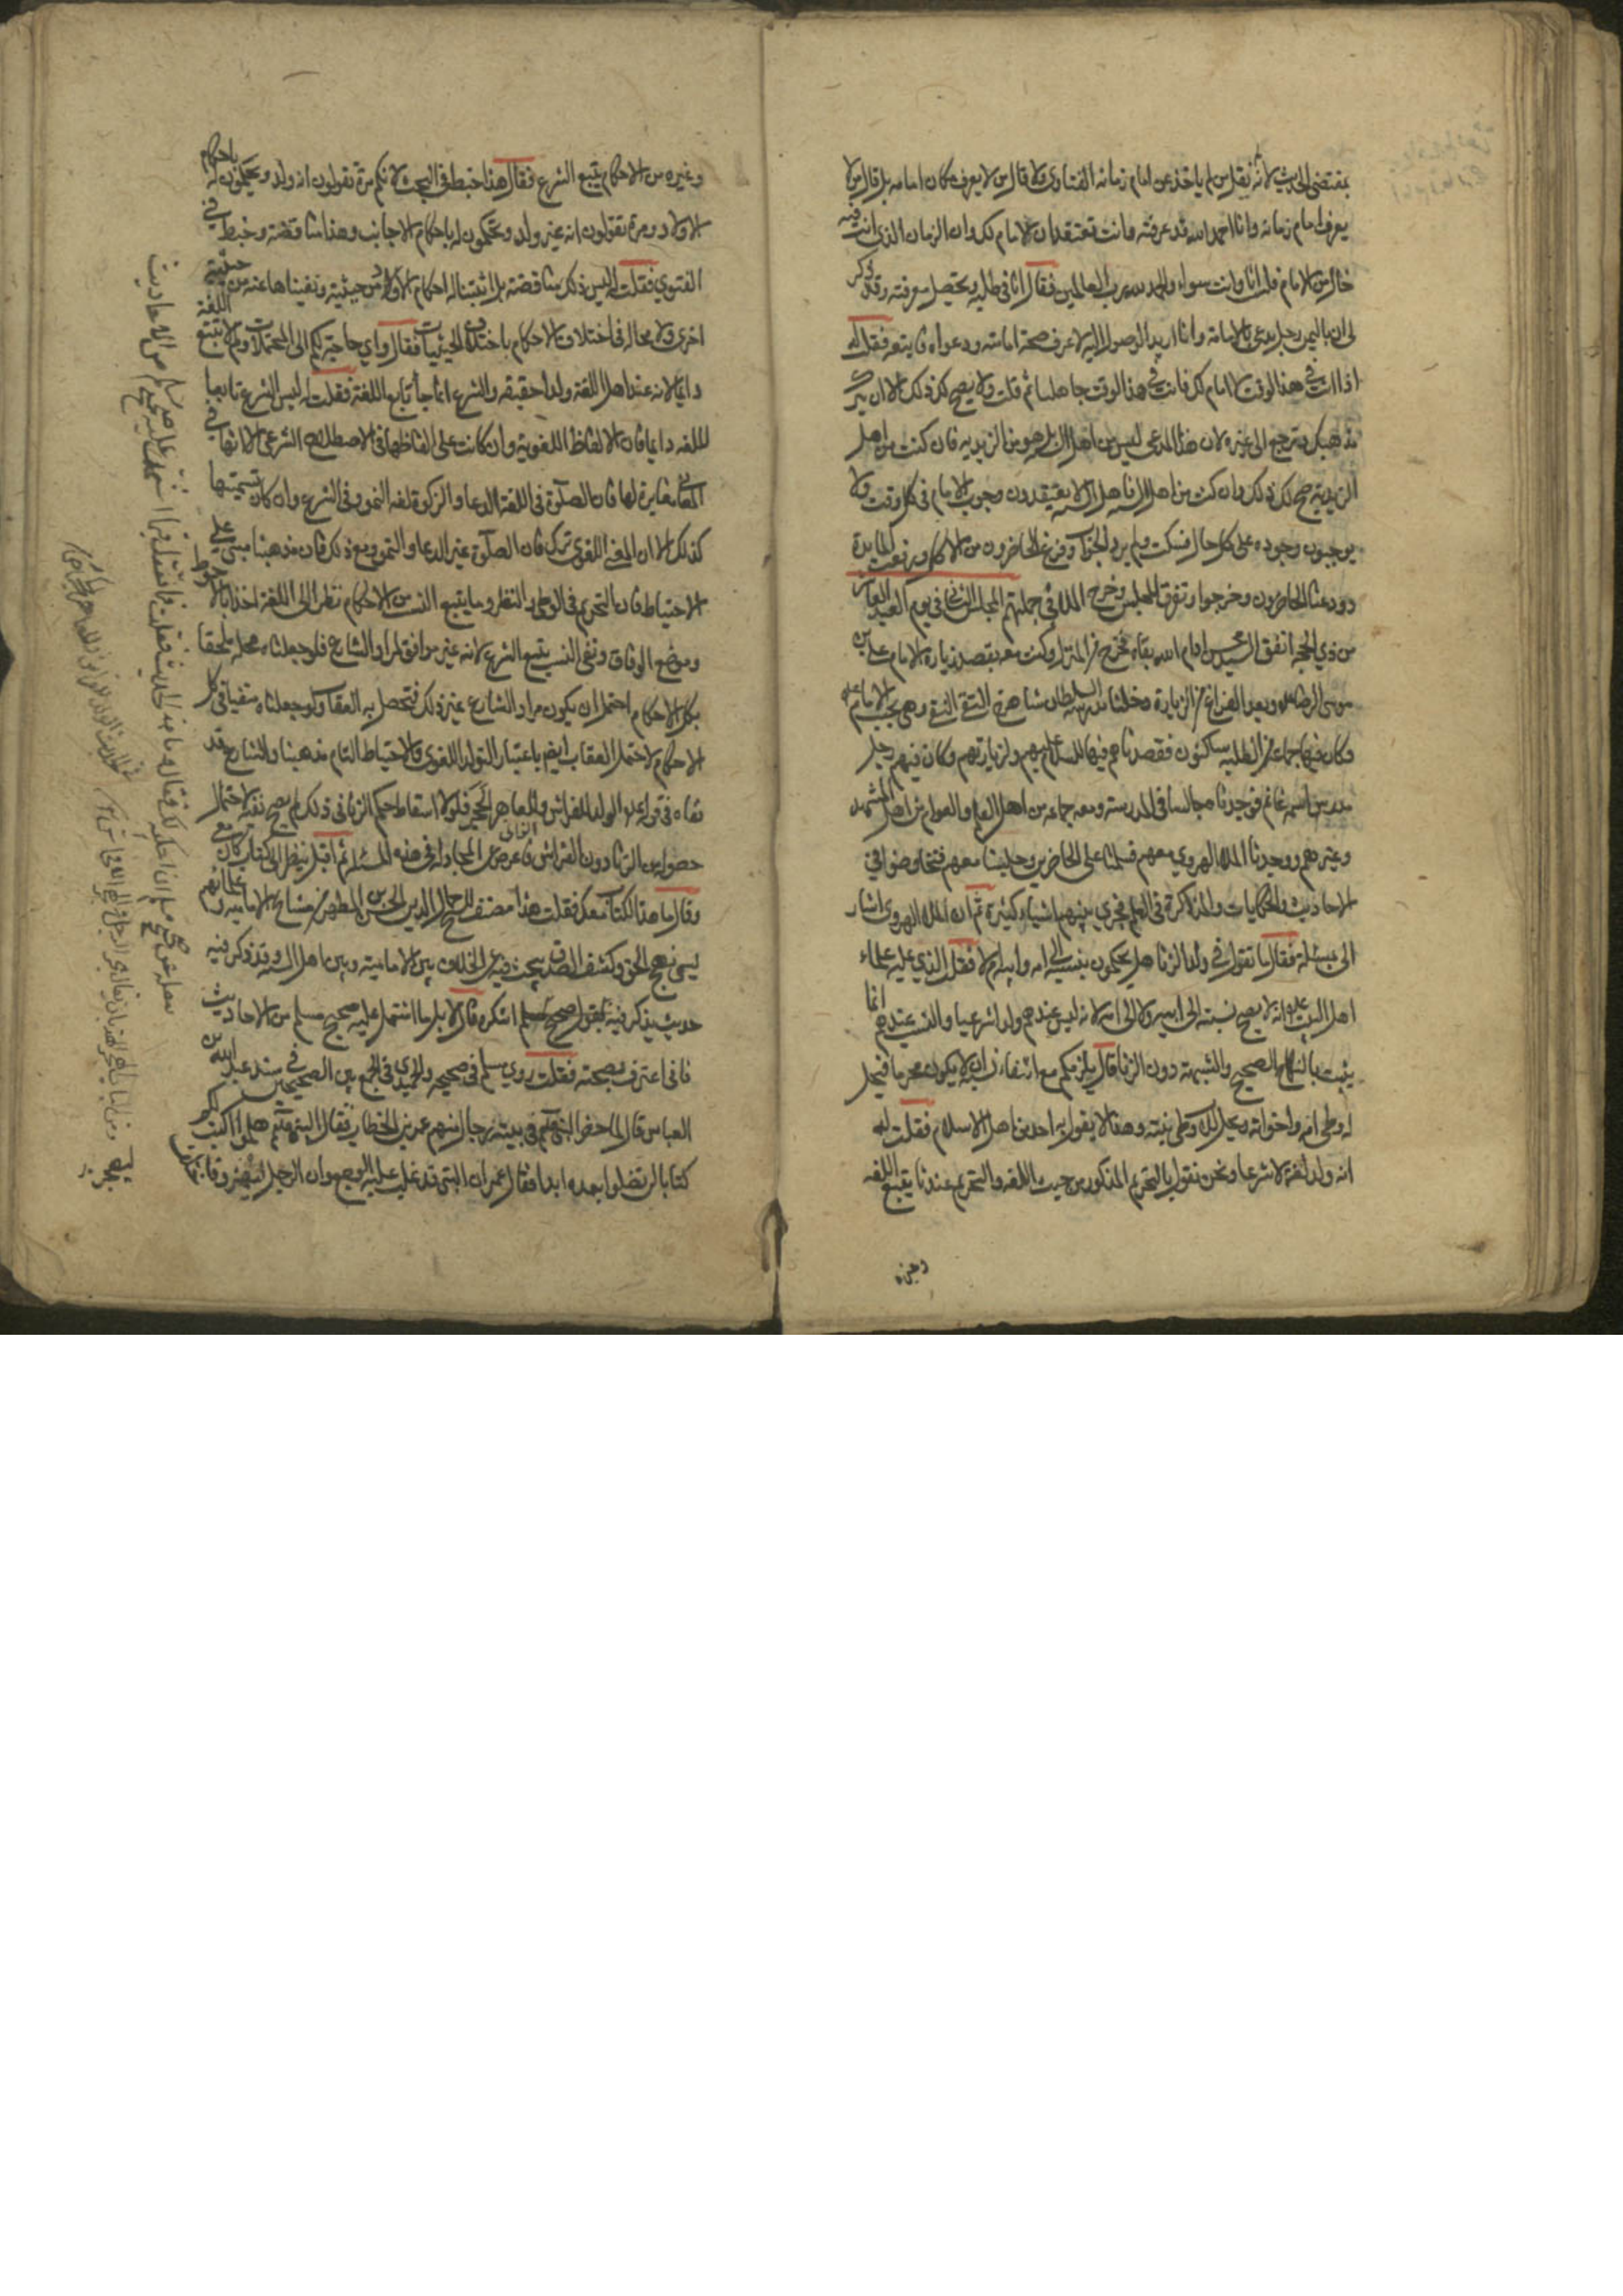 بمقتضى الحديث لانه لم يقل من لم ياخذ عن امام زمانه الفتاوى ولا قال من لا يعرف مكان امامه بل قال من لا
يعرف امام زمانه وانا احمد الله قد عرفته وانت تعتقد ان الامام لك وان الزمان الذي انت فيه
خال من الامام فلسنا انا وانت سواء والحمد لله رب العالمين فقال انا في طلبه وتحصيل معرفته وقد ذكر
لي ان باليمن رجل يدعي الامامة وانا اريد الوصول اليه لاعرف صحة امامته ودعواه فاتبعه فقلت له
اذا انت في هذا الوقت لا امام لك فانت في هذا الوقت جاهلي ثم قلت ولا يصح لك ذلك الا ان تترك
مذهبك وترجع الى غيره لان هذا المدعي ليس من اهل السنة بل هو من الزيدية فان كنت من اهل
الزيدية صح لك ذلك وان كنت من اهل السنة فاهل السنة لا يعتقدون وجوب الامام في كل وقت ولا
يوجبون وجوده على كل حال فسكت ولم يرد الجواب وفرغ الحاضرون من الاكل ورفعت المايدة
وودعنا الحاضرون وخرجوا وتفرق المجلس وخرج الملا في جملتهم المجلس الثاني في يوم العيد العاشر
من ذي الحجة اتفق ان السيد محسن ادام الله بقاءه خرج من المنزل وكنت معه بقصد زيارة الامام علي بن
موسى الرضا وبعد الفراغ من الزيارة دخلنا مدرسة السلطان شاهرخ وهي بجنب الامام
وكان فيها جماعة من الطلبة ساكنون فقصدناهم فيها للسلام عليهم ولزيارتهم وكان فيهم رجل
مدرس اسمه غانم فوجدناه جالسا في المدرسة ومعه جماعة من اهل العلم والعوام من اهل المشهد
وغيرهم ووجدنا الملا الهروي معهم فسلمنا على الحاضرين وجلسنا معهم فتخاوضوا في
الاحاديث والحكايات والمذاكرة في العلم فجرى بينهم اشياء كثيرة ثم ان الملا الهروي اشار
الى بمسئلة فقال ما تقول في ولد الزنا هل يحكمون بنسبه الى امه وابيه ام لا فقلت الذي عليه علماء
اهل البيت عليهم انه لا يصح نسبته الى ابيه ولا الى امه لانه ليس عندهم ولدا شرعيا والنسب عندهم انما
يثبت بالنكاح الصحيح والشبهة دون الزنا فقال يلزمكم مع انتفاء نسبه ان لا يكون محرما فيحل
له وطى امه واخواته ويحل للاب وطى بنته وهذا لا يقول به احد من اهل الاسلام فقلت له
انه ولد لغة لا شرعا ونحن نقول بالتحريم المذكور من حيث اللغه والتحريم عندنا يتبع اللغه
وغيره
وغيره من الاحكام يتبع الشرع فقال هذا خبط في البحث لانكم مرة تقولون انه ولد وتحكمون له باحكام
الاولاد ومرة تقولون انه غير ولد وتحكمون له باحكام الاجانب وهذا مناقضة وخبط في
الفتوي فقلت له ليس ذلك مناقضة بل اثبتنا له احكام الاولاد من حيثية ونفيناها عنه من حيثية
اخرى ولا محالة في اختلاف الاحكام باختلاف الحيثيات فقال واي حاجة بكم الى المحتملات ولم لا تتبع اللغة
دايما لانه عند اهل اللغة ولدا حقيقه والشرع انما جا تابع اللغة فقلت له ليس الشرع تابعا
للغه دايما فان الالفاظ اللغوية وان كانت على الفاظها في الاصطلاح الشرعي الا انها في
المعنى مغايرة لها فان الصلوة في اللغة الدعا والزكوة لغه النمو وفي الشرع وان كان تسميتها
كذلك الا ان المعنى اللغوي ترك فان الصلوة غير الدعا والنمو ومع ذلك فان مذهبنا مبني على
الاحتياط فان التحريم في الوطى والنظر وما يتبع النسب من الاحكام نظر الى اللغة اخذا بالاحوط
وموضع الوفاق ونفي النسب يتبع الشرع لانه غير موافق لمراد الشارع فلو جعلناه محله ملحقا
بكل الاحكام احتمل ان يكون مراد الشارع غير ذلك فتحصل به العقاب ولو جعلناه منفيا في كل
الاحكام لاحتمل العقاب ايضا باعتبار التولد اللغوي فالاحتياط التام مذهبنا والشارع قد
نفاه في قوله الولد للفراش وللعاهر الحجر فلولا اسقاط حكم الزاني في ذلك لم يصح نفيه لاحتمال
حصوله من الزنا دون الفراش فاعرض عن المجادلة في هذه المسئلة ثم اقبل ينظر الى كتاب كان معي
وقال ما هذا الكتاب معك فقلت هذا مصنف للشيخ جمال الدين الحسن بن المطهر من مشايخ الامامية وعلمائهم
يسمى نهج الحق وكشف الصدق يبحث فيه عن الخلاف بين الامامية وبين اهل السنة وقد ذكر فيه
حديث يذكر فيه يقول صحيح مسلم اتنكره قال لا بل ما اشتمل عليه صحيح مسلم من الاحاديث
فاني اعترف بصحته فقلت روى مسلم في صحيحه والحميدي في الجمع بين الصحيحين في مسند عبد الله بن
العباس قال لما حضر النبي في بيته رجال منهم عمر بن الخطاب فقال النبي هلموا اكتب لكم
كتابا لن تضلوا بعده ابدا فقال عمر ان النبي قد غلب عليه الوجع وان الرجل ليهجر